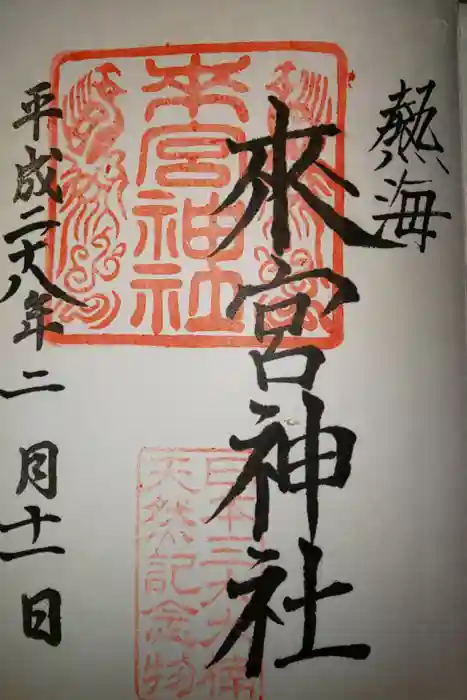 熱海
來宮神社
來宮神社
日本三大樟
天然記念物
平成二十八年二月十一日